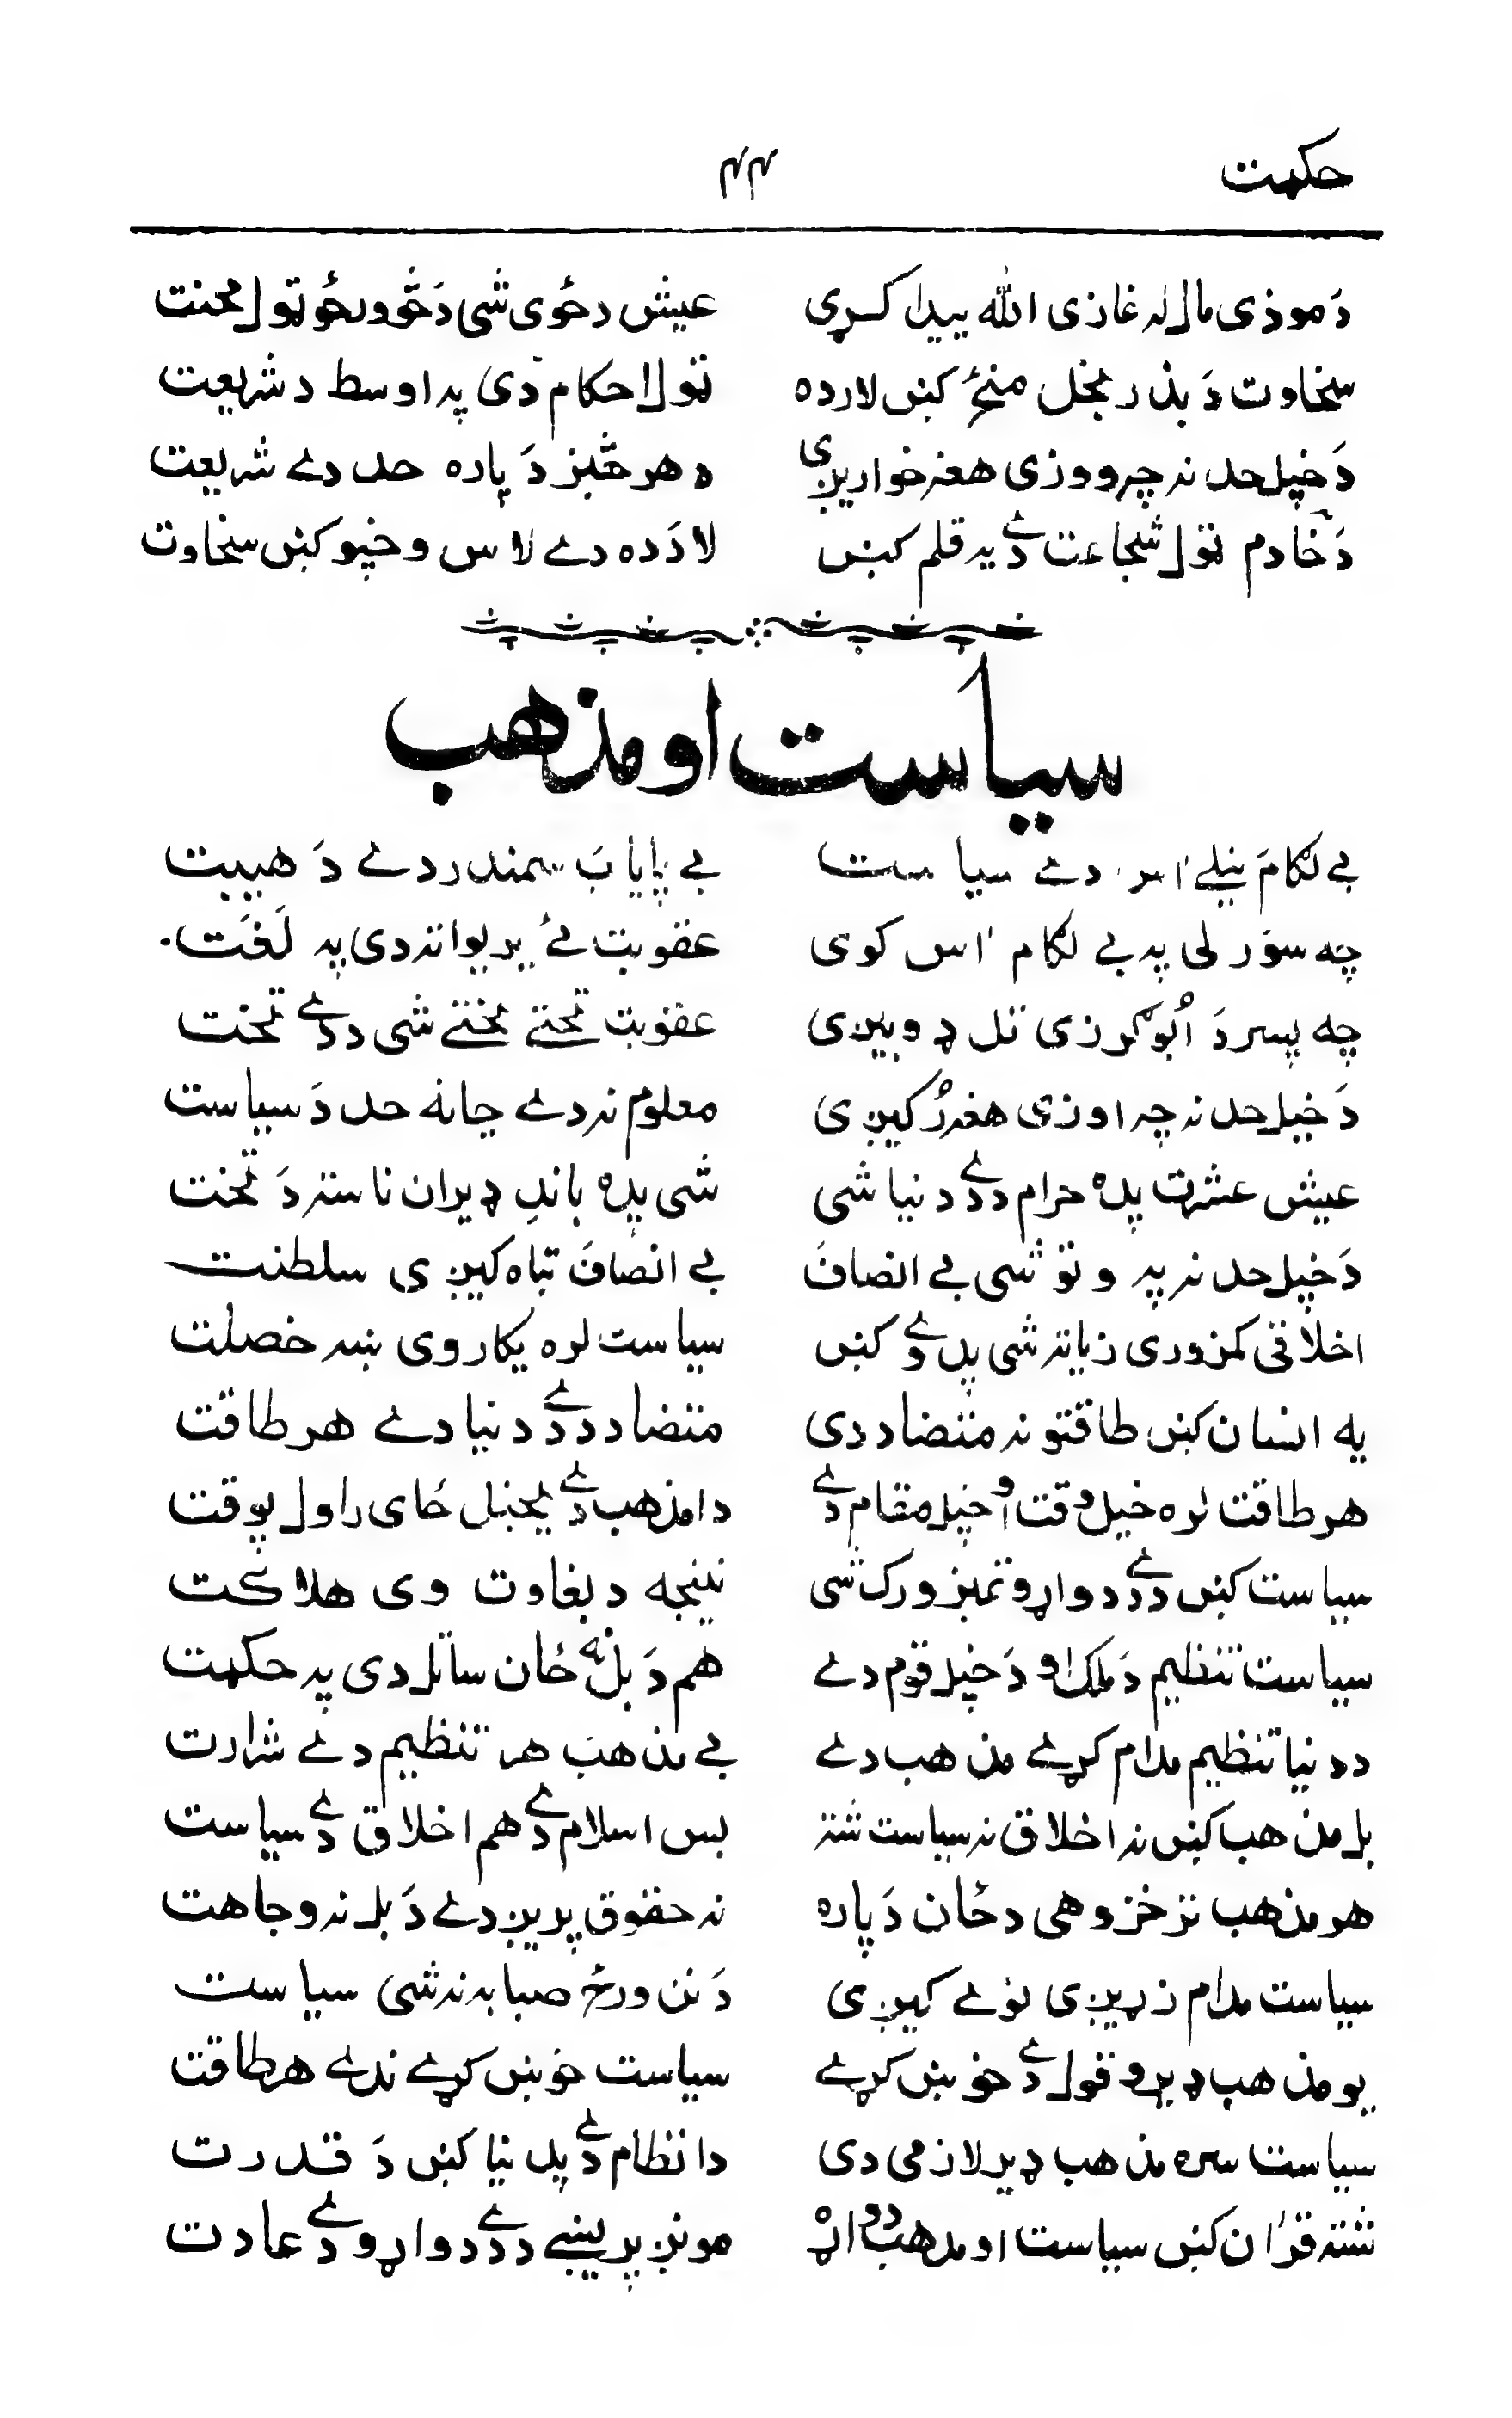 حکمت ۴۴
دَ موذی مال له غازی الله پیدا کړی عیش د خوی شی دَ څو ورځو ټول محنت
سخاوت دَ بذر بخل منځ کښ لار ده ټول احکام دی په اوسط د شریعت
دَ خپل حد نه چه ووزی هغه خواریږی د هر څیز دَ پاره حد دے شریعت
دَ خادم ټول شجاعت دے په قلم کښ لا دَ ده دے لاس و خپو کښ سخاوت
سیاست او مذهب
بے لګام نیلے اس دے سیاست بے پایاب سمندر دے دَ هیبت
چه سورلی په بے لګام اس کوی عقوبت ئے پریواته دی په لَغَت
چه پسر دَ اُبو ګرزی تل ډوبیږی عقوبت تختے تختے شی د دے تخت
دَ خپل حد نه چه اوزی هغه رُکیږی معلوم نه دے چا نه حد دَ سیاست
عیش عشرت پده حرام د دے دنیا شی شی پده باندِ ډیران ناسته دَ تخت
دَ خپل حد نه په وتو شی بے انصاف بے انصاف تباه کیږی سلطنت
اخلاقی کمزوری زیاته شی پدے کښ سیاست لره پکار وی ښه خصلت
په انسان کښ طاقتونه متضاد دی متضاد د دے دنیا دے هر طاقت
هر طاقت لره خپل وقت او خپل مقام دے دا مذهب دے پخپل ځای راول پوقت
سیاست کښ د دے دواړو تمیز ورک شی نتیجه د بغاوت وی هلاکت
سیاست تنظیم دَ ملک او دَ خپل قوم دے هم دَ بل نه ځان ساتل دی په حکمت
د دنیا تنظیم مدام کړے مذهب دے بے مذهب هر تنظیم دے شرارت
بل مذهب کښ نه اخلاق نه سیاست شته بس اسلام دے هم اخلاق دے سیاست
هر مذهب تر خز وهی د ځان دَ پاره نه حقوق پریږدے دَ بل نه وجاهت
سیاست مدام زړیږی نوے کیږی دَ نن ورځ صبا به نه شی سیاست
یو مذهب ډیرو قول دے خوښ کړے سیاست خوښ کړے ندے هر طاقت
سیاست سره مذهب ډیر لازمی دی دا نظام دے پدنیا کښ دَ قدرت
شته قرآن کښ سیاست او مذهب دواړه مونږ پریښے د دے دواړو دے عادت